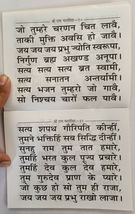 जो तुम्हरे चरणन चित लावै,
ताकी मुक्ति अवसि हो जावै।
जय जय जय प्रभु ज्योति स्वरूपा,
निर्गुण ब्रह्म अखण्ड अनूपा।
सत्य सत्य सत्य ब्रत स्वामी,
सत्य सनातन अन्तर्यामी।
सत्य भजन तुम्हरो जो गावै,
सो निश्चय चारों फल पावै।
सत्य शपथ गौरिपति कीन्हीं,
तुमने भक्तिहिं सब सिद्धि दीन्हीं।
सुनहु राम तुम तात हमारे,
तुमहिं भरत कुल पूज्य प्रचारे।
तुमहिं देव कुल देव हमारे,
तुम गुरुदेव प्राण के प्यारे।
जो कुछ हो सो तुम ही राजा,
जय जय जय प्रभु राखो लाजा।